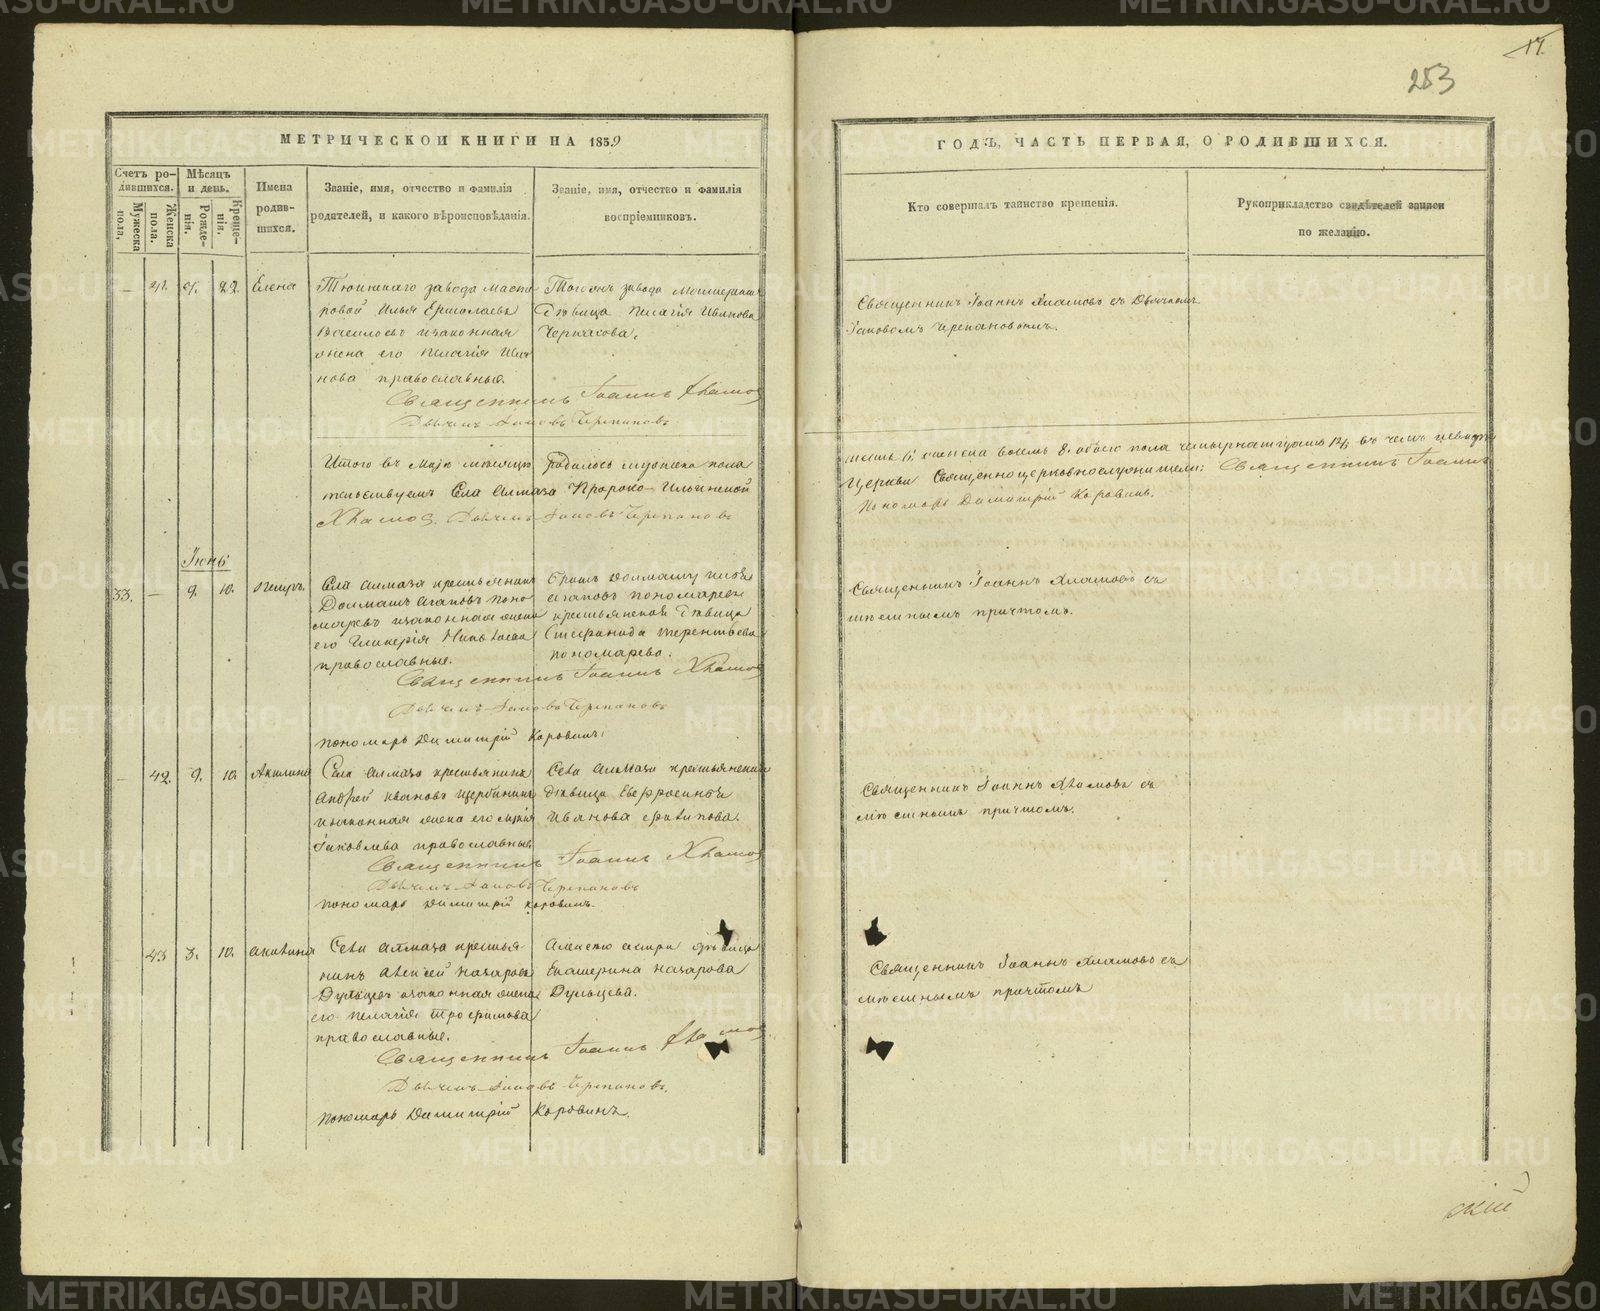 METRIKI.GASO-URAL.RU
17.
253
МЕТРИЧЕСКОЙ КНИГИ НА 1859
ГОДЪ, ЧАСТЬ ПЕРВАЯ, О РОДИВШИХСЯ.
Счетъ ро-
дившихся.
Мужеска
пола,
Женска
пола.
Мѣсяцъ
и день.
Рожде-
нія.
Креще-
нія.
Имена
родив-
шихся.
Званіе, имя, отчество и фамилія
родителей, и какого вѣроисповѣданія.
Званіе, имя, отчество и фамилія
воспріемниковъ.
Кто совершалъ таинство крещенія.
Рукоприкладство свидѣтелей записи
по желанію.
41. 21. 22. Елена
завода Масте
ровой Илья Ермолаевъ
Василовъ и законная
жена его Пелагія Ива
нова православные.
Тогожъ завода
Дѣвица Пелагія Иванова
Черкасова.
Священникъ Іоаннъ Хламовъ
Дьячекъ Іаковъ Черепановъ
Священникъ Іоаннъ Хламовъ съ Дьячкомъ
Іаковомъ Черепановымъ.
Итого въ Маѣ мѣсяцѣ родилось мужеска пола
Села Алмаза Пророко-Ильинской
Хламов. Дьячекъ Іаковъ Черепановъ
женска восемь 8. обоего пола четырнатцать 14, въ чемъ
Церкви Священноцерковнослужители: Священникъ Іоаннъ
Пономарь Димитрій Коровинъ.
Іюнь
33. — 9. 10. Петръ.
Села Алмаза крестьянинъ
Долматъ Агаповъ Поно
маревъ и законная жена
его Гликерія
православные.
Братъ Долмату
Агаповъ Пономаревъ
крестьянская дѣвица
Стефанида Терентьева
Пономарева.
Священникъ Іоаннъ Хламов
Дьячекъ Іаковъ Черепановъ
Пономарь Димитрій Коровинъ.
Священникъ Іоаннъ Хламовъ съ
мѣстнымъ причтомъ.
— 42. 9. 10. Акилина
Села Алмаза крестьянинъ
Андрей Ивановъ Щербининъ
и законная жена его
Іаковлева православные
Села Алмаза крестьянская
дѣвица Евфросинія
Иванова
Священникъ Іоаннъ Хламов
Дьячекъ Іаковъ Черепановъ
Пономарь Димитрій Коровинъ.
Священникъ Іоаннъ Хламовъ съ
мѣстнымъ причтомъ.
43 3. 10. Акилина
Села Алмаза крестья
нинъ Алексѣй Назаровъ
Дульцевъ и законная жена
его Пелагія Трофимова
православные.
Алексѣю сестра дѣвица
Екатерина Назарова
Дульцева.
Священникъ Іоаннъ Хламов
Дьячекъ Іаковъ Черепановъ.
Пономарь Димитрій Коровинъ.
Священникъ Іоаннъ Хламовъ съ
мѣстнымъ причтомъ
скій